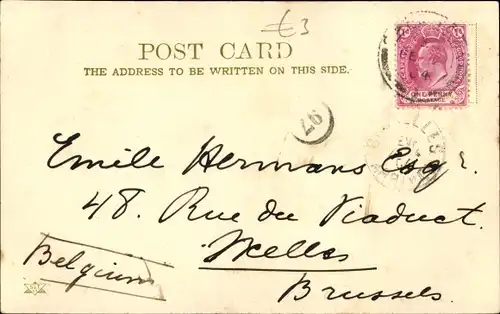 £3
POST CARD
THE ADDRESS TO BE WRITTEN ON THIS SIDE.
ONE PENNY
97
Emile Hermans Esqr.
48. Rue du Viaduct.
Ixelles
Belgium
Brussels.